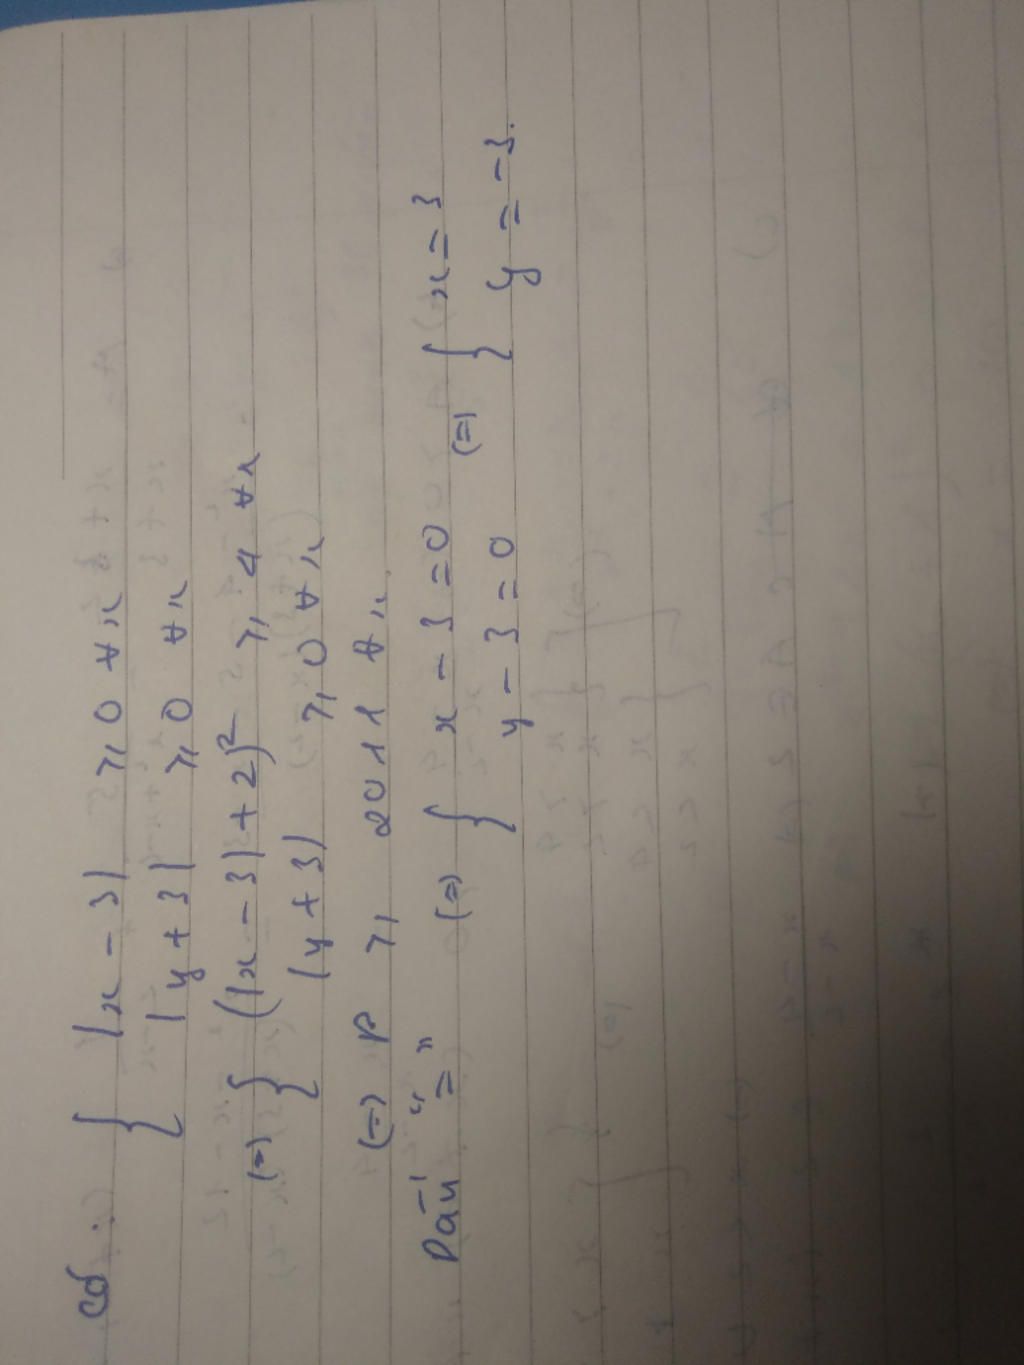 Có: { |x - 3| ≥ 0 ∀x
|y + 3| ≥ 0 ∀x
(=) { (|x - 3| + 2)² ≥ 4 ∀x
|y + 3| ≥ 0 ∀x
(=) P ≥ 2011 ∀x
Dấu "=" (=) { x - 3 = 0 (=) { x = 3
y - 3 = 0 y = -3.